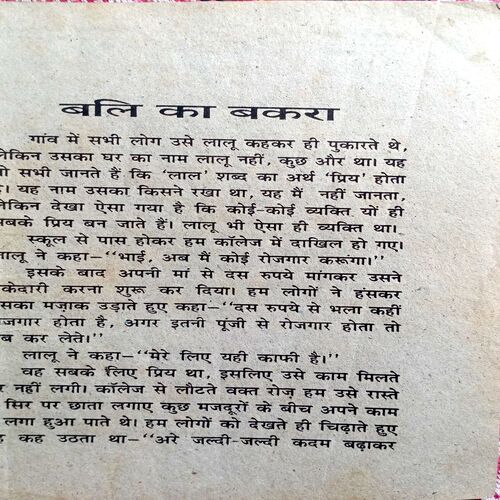 बलि का बकरा
गांव में सभी लोग उसे लालू कहकर ही पुकारते थे,
लेकिन उसका घर का नाम लालू नहीं, कुछ और था। यह
सभी जानते हैं कि 'लाल' शब्द का अर्थ 'प्रिय' होता
यह नाम उसका किसने रखा था, यह मैं नहीं जानता,
लेकिन देखा ऐसा गया है कि कोई-कोई व्यक्ति यों ही
सबके प्रिय बन जाते हैं। लालू भी ऐसा ही व्यक्ति था।
स्कूल से पास होकर हम कॉलेज में दाखिल हो गए।
लालू ने कहा—"भाई, अब मैं कोई रोजगार करूंगा।"
इसके बाद अपनी मां से दस रुपये मांगकर उसने
केदारी करना शुरू कर दिया। हम लोगों ने हंसकर
सका मज़ाक उड़ाते हुए कहा—"दस रुपये से भला कहीं
जगार होता है, अगर इतनी पूंजी से रोजगार होता तो
ब कर लेते।"
लालू ने कहा—"मेरे लिए यही काफी है।"
वह सबके लिए प्रिय था, इसलिए उसे काम मिलते
र नहीं लगी। कॉलेज से लौटते वक्त रोज़ हम उसे रास्ते
सिर पर छाता लगाए कुछ मजदूरों के बीच अपने काम
लगा हुआ पाते थे। हम लोगों को देखते ही चिढ़ाते हुए
ह कह उठता था—"अरे जल्दी-जल्दी कदम बढ़ाकर